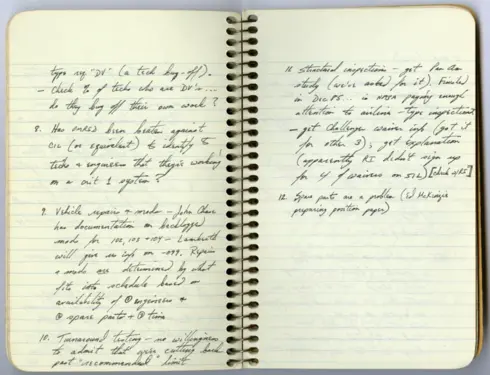 type sig "DV" (a tech buy-off).
- Check % of techs who are DV's...
do they buy off their own work?
8. Has OMRSD been beaten against
CIL (or equivalent) to identify to
techs & engineers that they're working
on a crit 1 system?
9. Vehicle repair & mods - John Chase
has documentation on backlogged
mods for 102, 103 & 104 - Lambreth
will give us info on -099. Repairs
& mods are determined by what
fits into schedule based on
availability of ① engineers &
② spare parts & ③ time
10. Turnaround testing - no willingness
to admit that were cutting back
past "recommended" limit
11. Structural inspections - get Pan Am
study (we've asked for it). Finished
in Dec 85... is NASA paying enough
attention to airline-type inspections?
- get Challenger waiver info (got it
for other 3), get explanation
(apparently RI didn't sign up
for 4 of waivers on 51L) [check w/RI]
12. Spare parts are a problem (Ed McKenzie
preparing position paper)